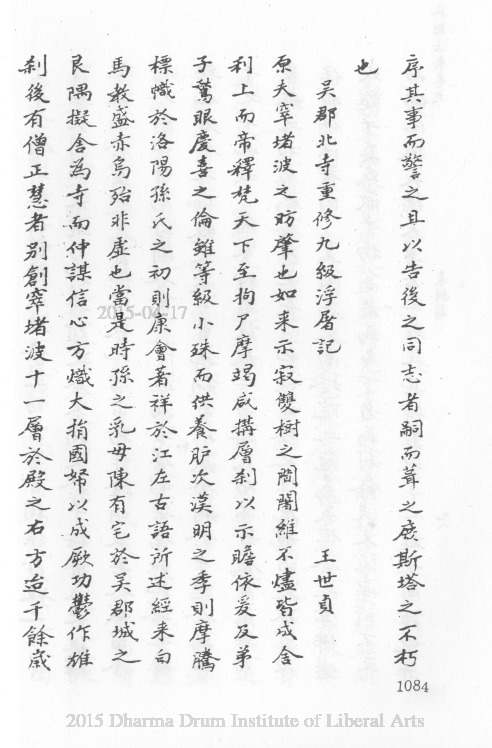 序其事而警之且以告後之同志者嗣而葺之庶斯塔之不朽
也
吳郡北寺重修九級浮屠記 王世貞
原夫窣堵波之昉肇也如来示寂雙樹之間闍維不燼皆成舍
利上而帝釋梵天下至拘尸摩竭咸搆層刹以示瞻依爰及弟
子鶖眼慶喜之倫雖等級小殊而供養胪次漢明之季則摩騰
標幟於洛陽孫氏之初則康會著祥於江左古語所述經来白
馬教盛赤烏殆非虛也當是時孫之乳母陳有宅於吳郡城之
艮隅擬舍為寺而仲謀信心方熾大捐國帑以成厥功鬱作雄
刹後有僧正慧者别創窣堵波十一層於殿之右方迨千餘歲
1084
2015-04-17
2015 Dharma Drum Institute of Liberal Arts